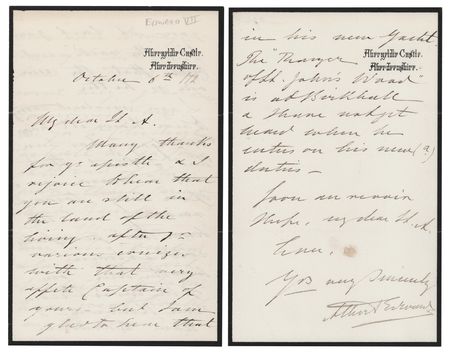 Edward VII
Abergeldie Castle,
Aberdeenshire.
October 6th /72
My dear St. A.
Many thanks
for yr. epistle & I
rejoice to hear that
you are still in
the land of the
living after yr.
various
with that very
Captain of
yours – but I am
glad to hear that
in his new Yacht.
Abergeldie Castle,
Aberdeenshire.
The "Ranger
of St. John's Wood"
is at Birkhall
& I have not yet
heard when he
enters on his new (a)
duties –
Soon au revoir
I hope, my dear St. A.
Yrs very Sincerely
Albert Edward